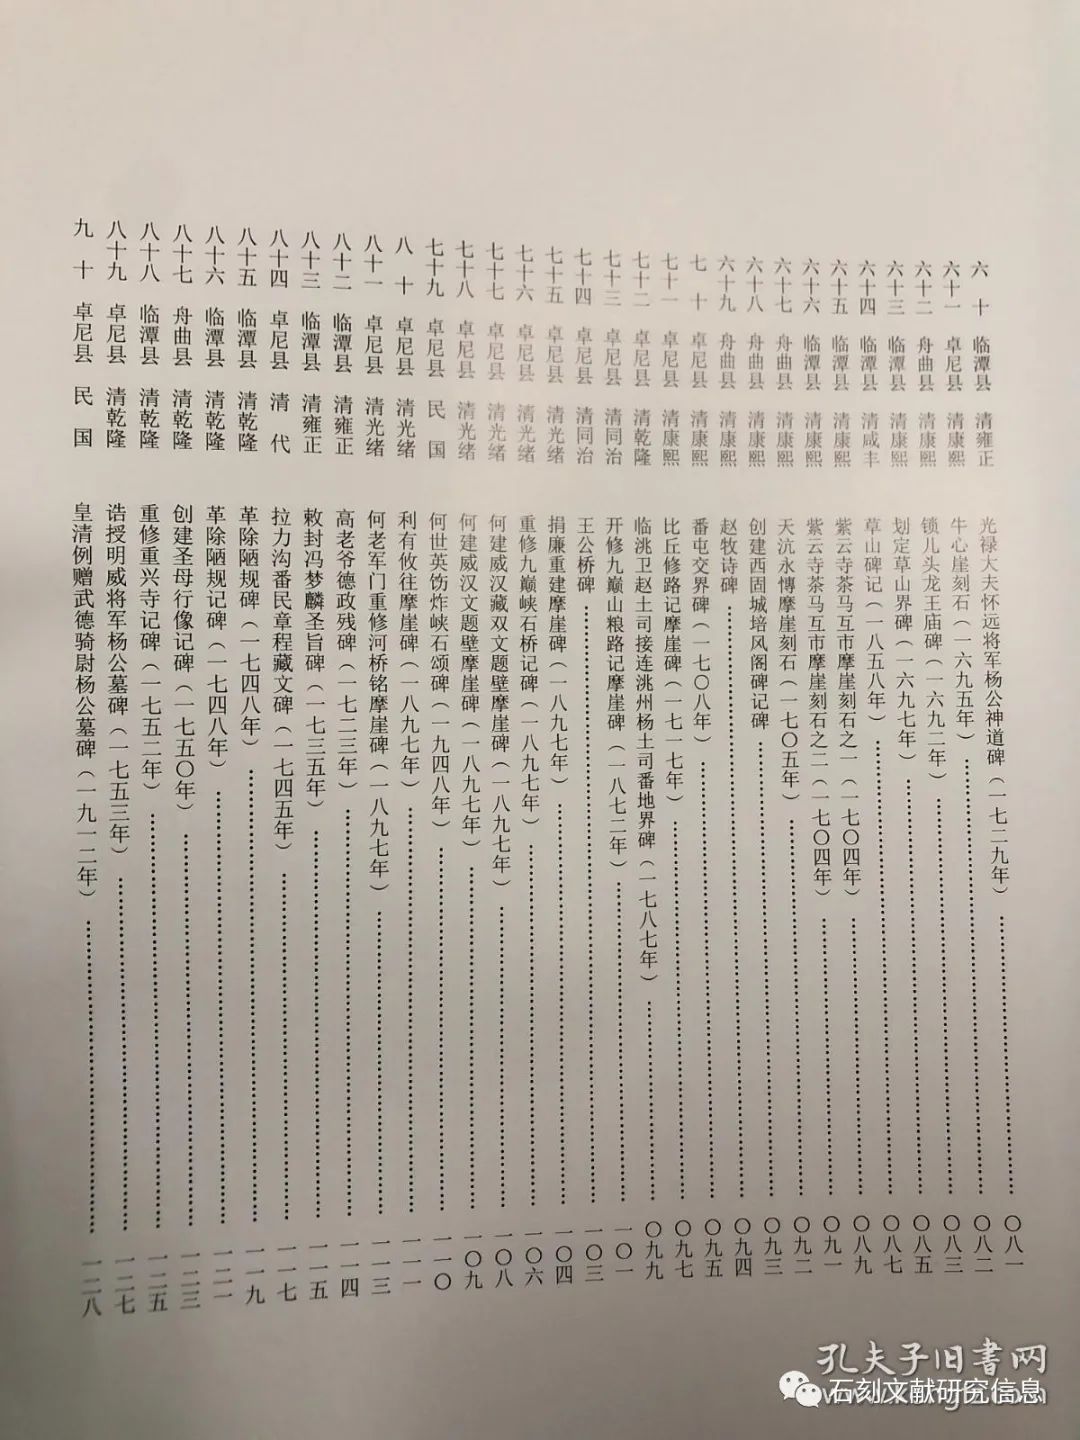 六十 临潭县 清雍正 光禄大夫怀远将军杨公神道碑（一七二九年）……〇八一
六十一 卓尼县 清康熙 牛心崖刻石（一六九五年）……〇八二
六十二 舟曲县 清康熙 锁儿头龙王庙碑（一六九二年）……〇八三
六十三 临潭县 清康熙 划定草山界碑（一六九七年）……〇八五
六十四 临潭县 清咸丰 草山碑记（一八五八年）……〇八七
六十五 临潭县 清康熙 紫云寺茶马互市摩崖刻石之一（一七〇四年）……〇八九
六十六 临潭县 清康熙 紫云寺茶马互市摩崖刻石之二（一七〇四年）……〇九一
六十七 舟曲县 清康熙 天沆永慱摩崖刻石（一七〇五年）……〇九二
六十八 舟曲县 清康熙 创建西固城培风阁碑记碑……〇九三
六十九 舟曲县 清康熙 赵牧诗碑……〇九四
七十 卓尼县 清康熙 番屯交界碑（一七〇八年）……〇九五
七十一 卓尼县 清康熙 比丘修路记摩崖碑（一七一七年）……〇九七
七十二 卓尼县 清乾隆 临洮卫赵土司接连洮州杨土司番地界碑（一七八七年）……〇九九
七十三 卓尼县 清同治 开修九巅山粮路记摩崖碑（一八七二年）……一〇一
七十四 卓尼县 清同治 王公桥碑……一〇三
七十五 卓尼县 清光绪 捐廉重建摩崖碑（一八九七年）……一〇四
七十六 卓尼县 清光绪 重修九巅峡石桥记碑（一八九七年）……一〇六
七十七 卓尼县 清光绪 何建威汉藏双文题壁摩崖碑（一八九七年）……一〇八
七十八 卓尼县 清光绪 何建威汉文题壁摩崖碑（一八九七年）……一〇九
七十九 卓尼县 民国 何世英饬炸峡石颂碑（一九四八年）……一一〇
八十 卓尼县 清光绪 利有攸往摩崖碑（一八九七年）……一一一
八十一 卓尼县 清光绪 何老军门重修河桥铭摩崖碑（一八九七年）……一一三
八十二 临潭县 清雍正 高老爷德政残碑（一七二三年）……一一四
八十三 临潭县 清雍正 敕封冯梦麟圣旨碑（一七三五年）……一一五
八十四 卓尼县 清代 拉力沟番民章程藏文碑（一七四五年）……一一七
八十五 临潭县 清乾隆 革除陋规碑（一七四八年）……一一九
八十六 临潭县 清乾隆 革除陋规记碑（一七四八年）……一二一
八十七 舟曲县 清乾隆 创建圣母行像记碑（一七五〇年）……一二三
八十八 临潭县 清乾隆 重修重兴寺记碑（一七五二年）……一二五
八十九 卓尼县 清乾隆 诰授明威将军杨公墓碑（一七五三年）……一二七
九十 卓尼县 民国 皇清例赠武德骑尉杨公墓碑（一九一二年）……一二八
孔夫子旧书网
石刻文献研究信息